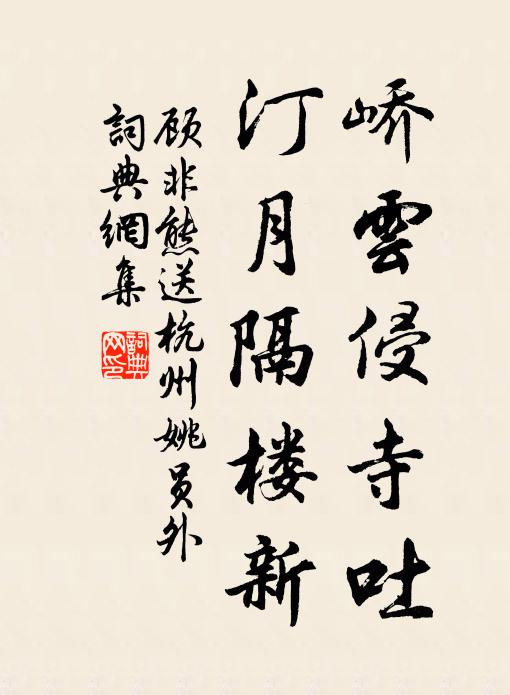 峤雲侵寺吐
汀月隔楼新
顾非熊送杭州姚员外
詞典網集
詞典
网印